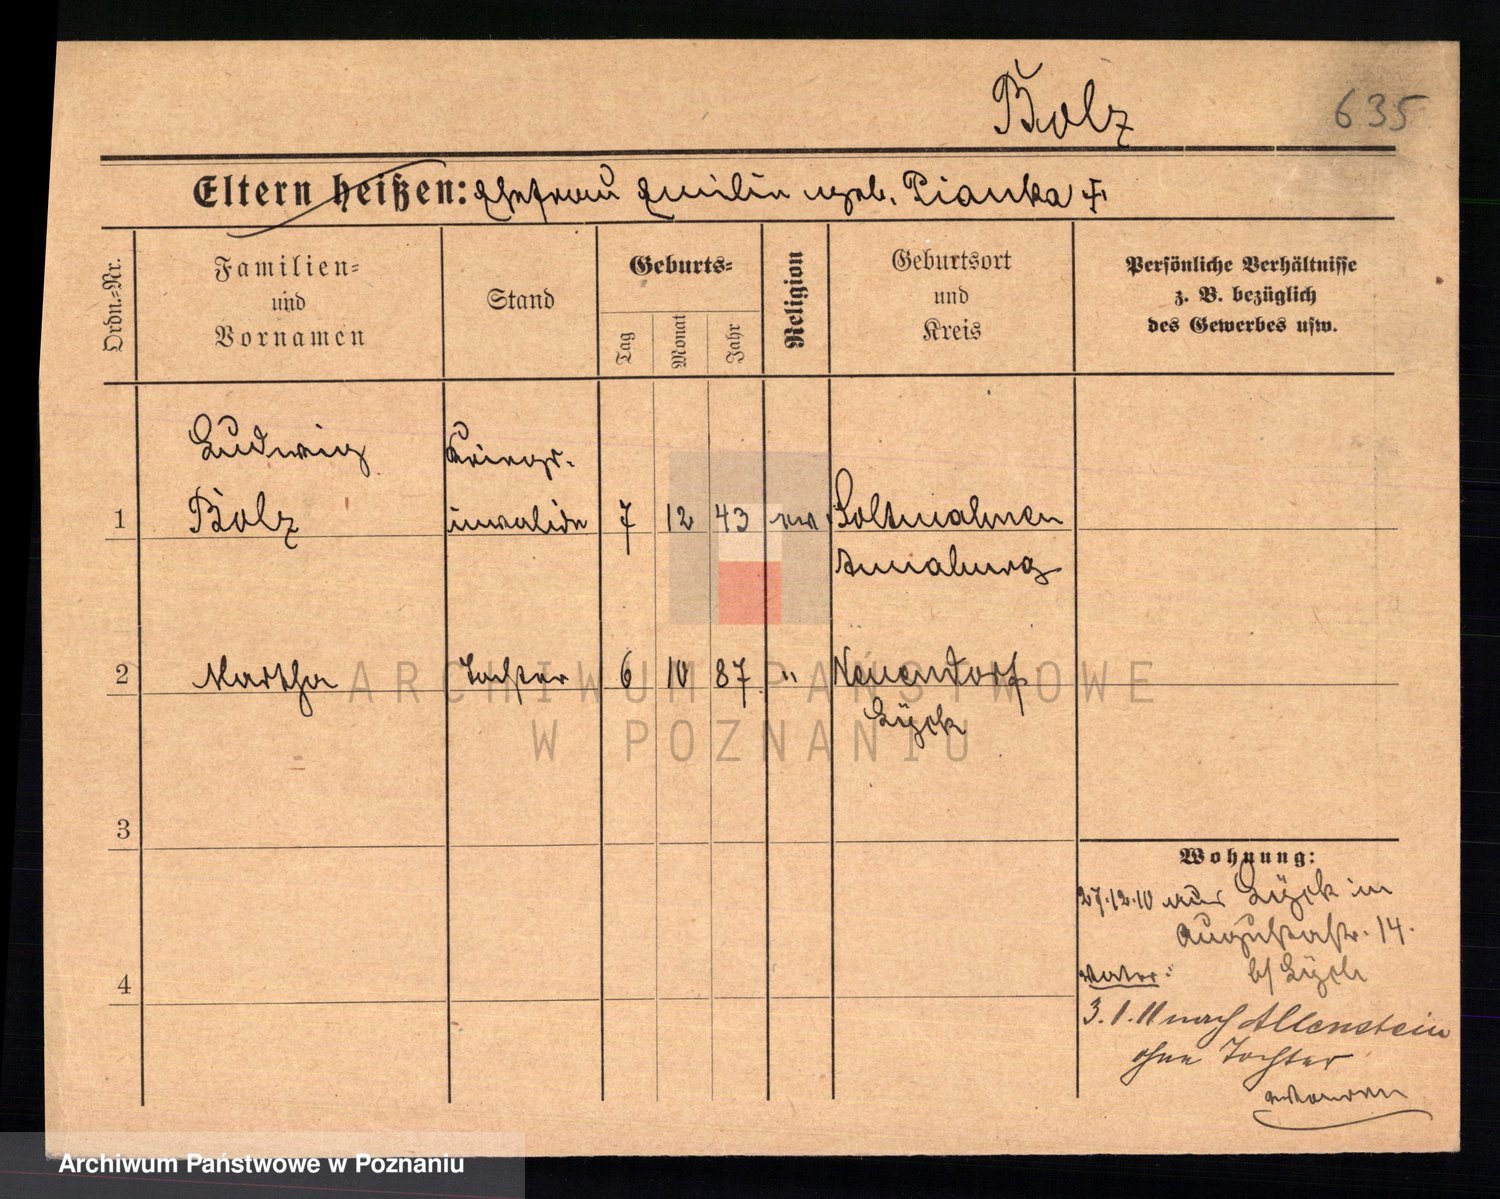 Bolz
635
Eltern heißen: Ehefrau Emilie geb. Pianka †
Ordn.=Nr.
Familien=
und
Vornamen
Stand
Geburts=
Tag
Monat
Jahr
Religion
Geburtsort
und
Kreis
Persönliche Verhältnisse
z. B. bezüglich
des Gewerbes usw.
Ludwig
Kriegs-
1 Bolz invalide 7 12 43 ev. Soltmahnen
Annaburg
2 Martha Tochter 6 10 87 " Neuendorf
Lyck
3
4
Wohnung:
27.12.10 aus Lyck in
Augustastr. 14.
b/ Lyck
Vater:
3.1.11 nach Allenstein
ohne Tochter
ARCHIWUM PAŃSTWOWE
W POZNANIU
Archiwum Państwowe w Poznaniu